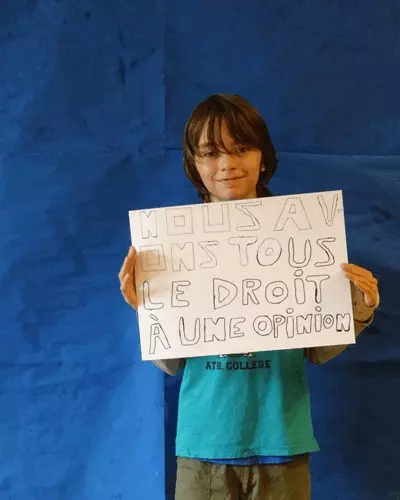 NOUS AV-
ONS TOUS
LE DROIT
À UNE OPINION
ATH. COLLEGE